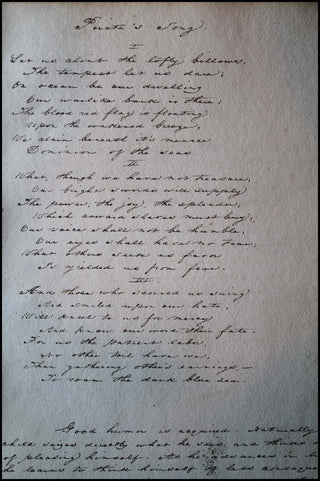 Pirate's Song.
I
Let us climb the lofty billows,
The tempest let us dare;
On ocean be our dwelling
Our warlike bark is there:
The blood red flag is floating
Upon the wakened breeze,
We claim beneath it's menace
Dominion of the seas.
II
What, though we have not treasure,
Our bright swords will supply
The power, the joy, the splendor,
Which coward slaves must buy;
Our voice shall not be humble,
Our eyes shall have no tear;
What others seek as favor
Is yielded us from fear.
III
And those who scorned us suing
And smiled upon our hate,
Will kneel to us for mercy
And know our word their fate.
For us the patient labor,
No other toil have we,
Than gathering others earnings,—
To roam the dark blue sea.
Good humor is acquired. Naturally
child says directly what he sees and thinks
of pleasing himself. As he advances in
he learns to think himself of less consequ